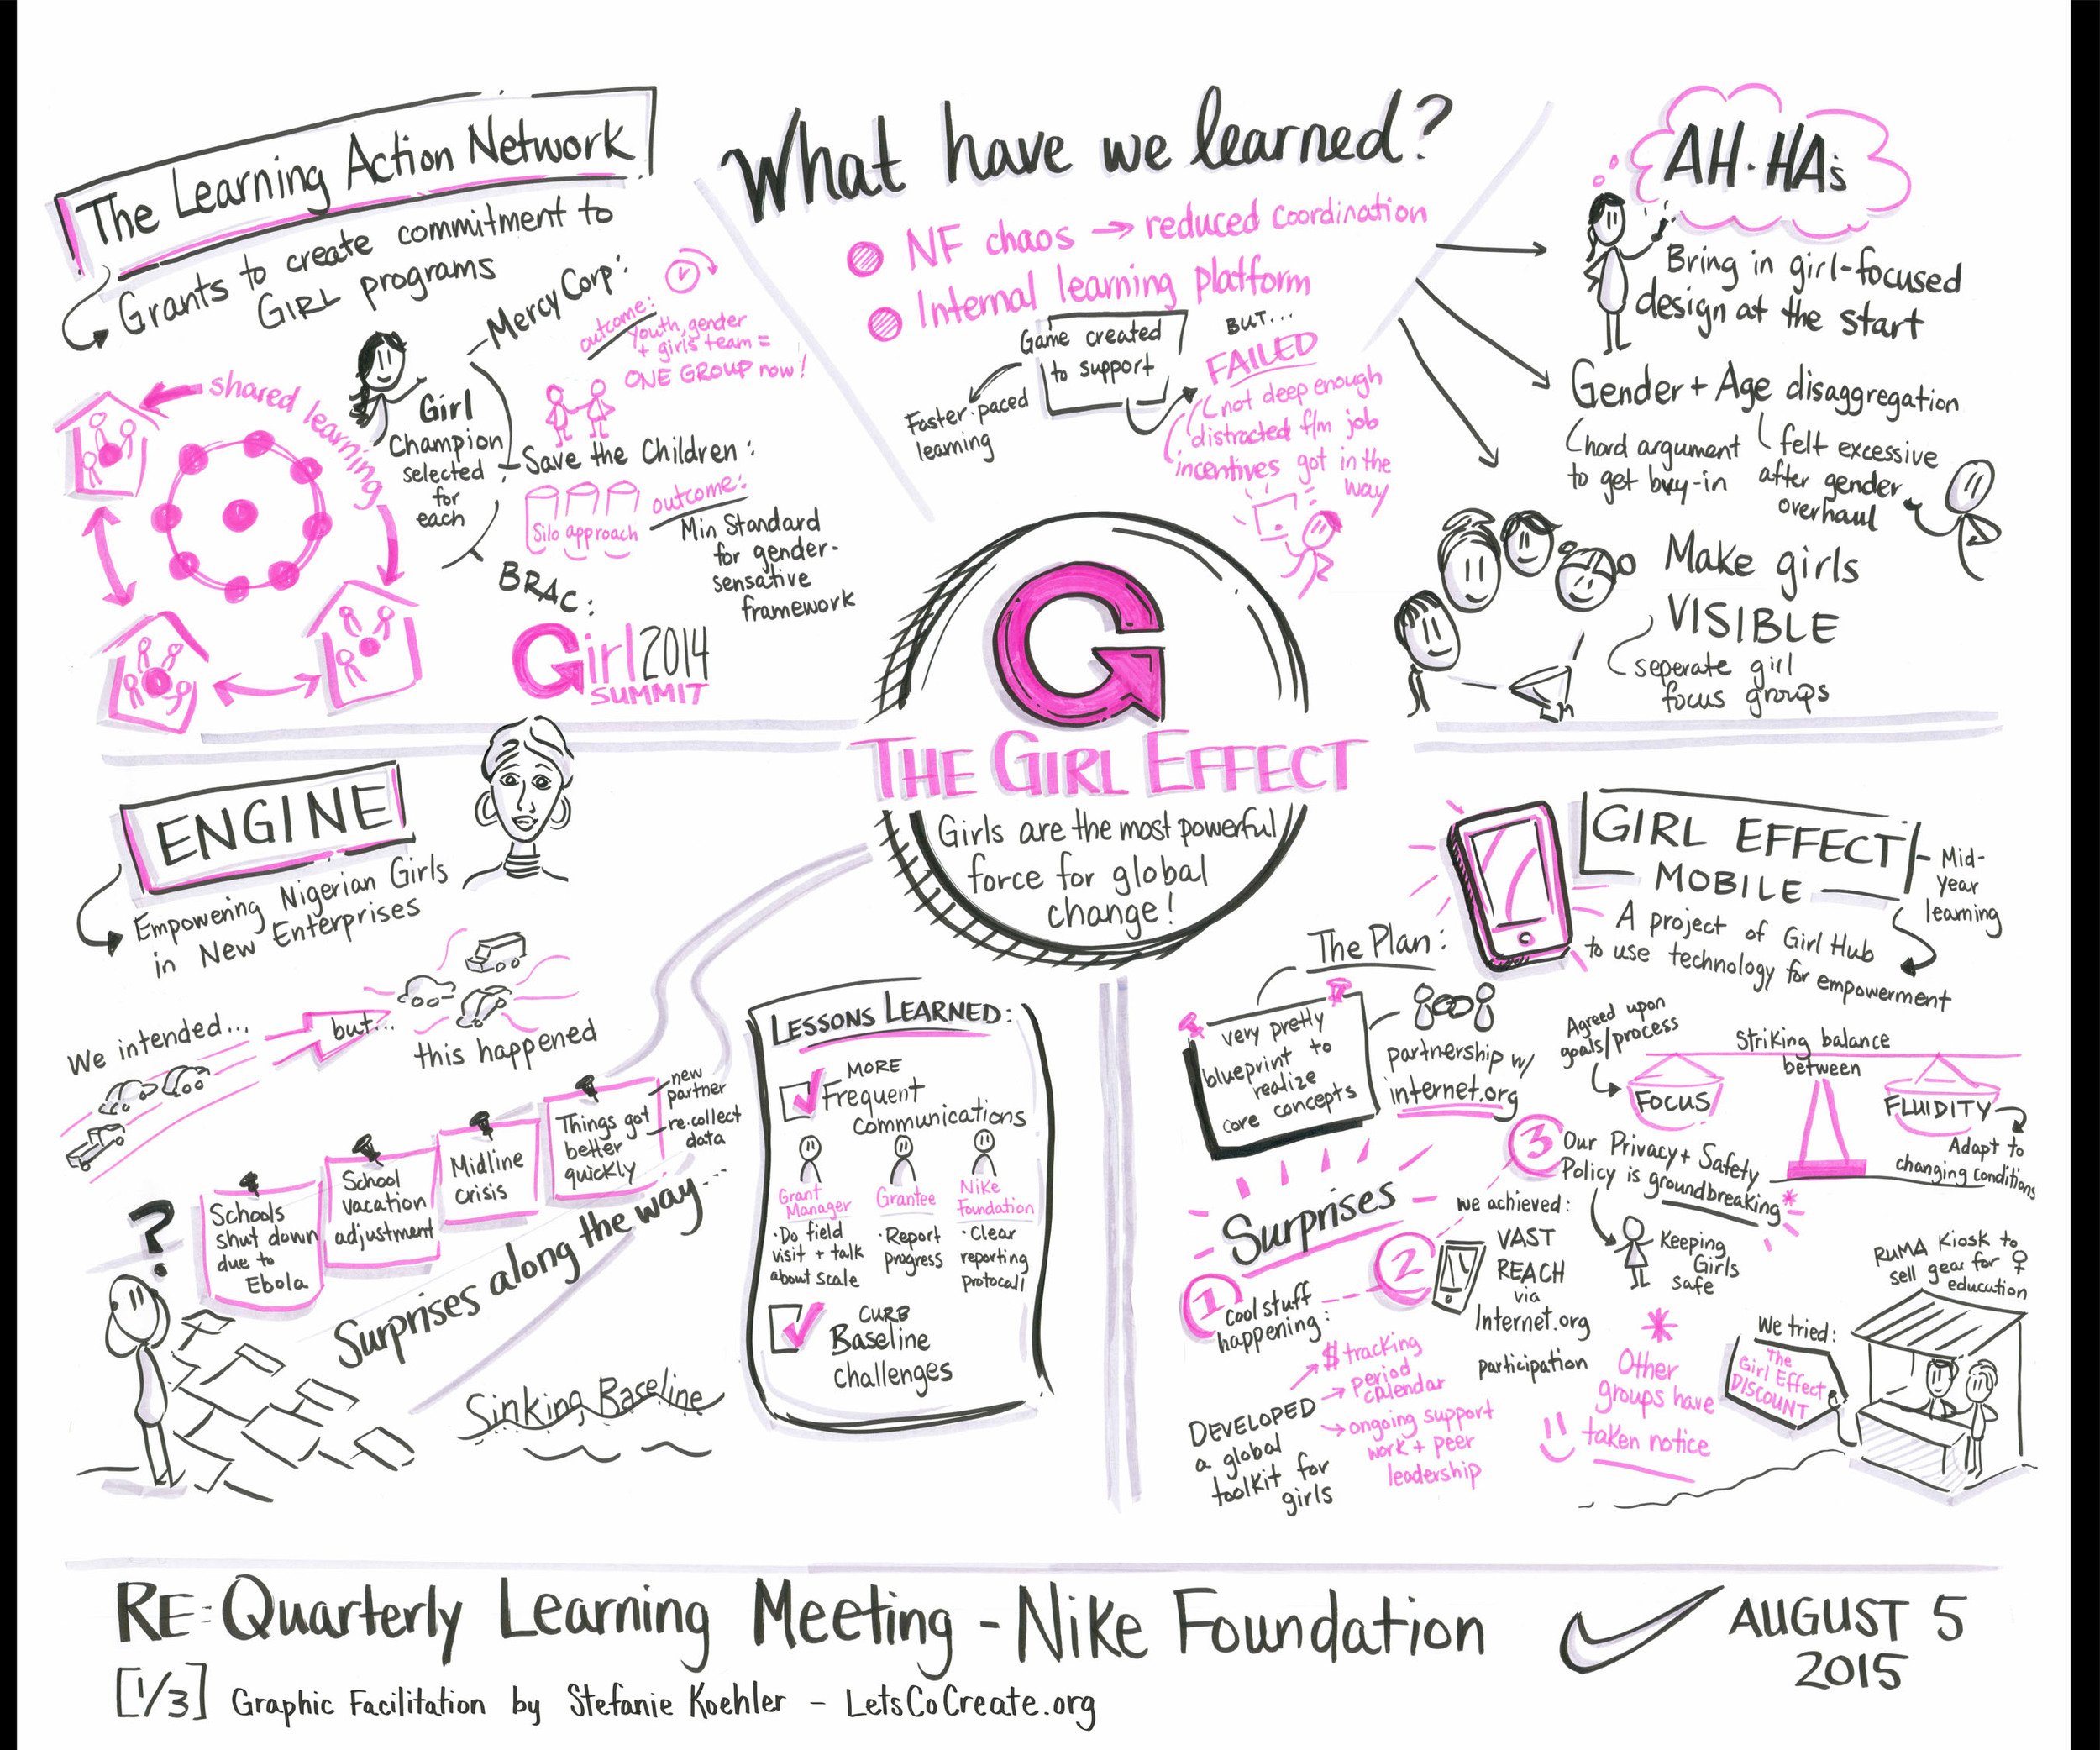 The Learning Action Network
Grants to create commitment to
GIRL programs
Mercy Corp:
outcome:
Youth, gender
+ girls team =
ONE GROUP now!
shared learning
Girl
Champion
selected
for
each
Save the Children:
Silo approach
outcome:
Min Standard
for gender-
sensative
framework
BRAC:
Girl 2014
SUMMIT
What have we learned?
NF chaos → reduced coordination
Internal learning platform
Game created
to support
Faster-paced
learning
BUT...
FAILED
not deep enough
distracted f/m job
incentives got in the
way
AH-HAs
Bring in girl-focused
design at the start
Gender + Age disaggregation
hard argument
to get buy-in
felt excessive
after gender
overhaul
Make girls
VISIBLE
seperate girl
focus groups
G
THE GIRL EFFECT
Girls are the most powerful
force for global
change!
ENGINE
Empowering Nigerian Girls
in New Enterprises
We intended...
but...
this happened
Schools
shut down
due to
Ebola
School
vacation
adjustment
Midline
crisis
Things got
better
quickly
new
partner
re-collect
data
?
Surprises along the way...
Sinking Baseline
LESSONS LEARNED:
MORE
Frequent
Communications
Grant
Manager
·Do field
visit + talk
about scale
Grantee
·Report
progress
Nike
Foundation
·Clear
reporting
protocall
CURB
Baseline
challenges
GIRL EFFECT
MOBILE
Mid-
year
learning
A project of Girl Hub
to use technology for empowerment
The Plan:
very pretty
blueprint to
realize
core concepts
partnership w/
internet.org
Agreed upon
goals/process
Striking balance
between
FOCUS
FLUIDITY
Adapt to
changing conditions
Surprises
1
Cool stuff
happening:
DEVELOPED
a global
toolkit for
girls
→ $ tracking
→ period
calendar
→ ongoing support
work + peer
leadership
2
we achieved:
VAST
REACH
via
Internet.org
participation
3
Our Privacy + Safety
Policy is groundbreaking*
Keeping
Girls
safe
*
Other
groups have
taken notice
RUMA Kiosk to
sell gear for ♀
education
We tried:
The
Girl Effect
DISCOUNT
RE: Quarterly Learning Meeting - Nike Foundation
AUGUST 5
2015
[1/3] Graphic Facilitation by Stefanie Koehler - LetsCoCreate.org